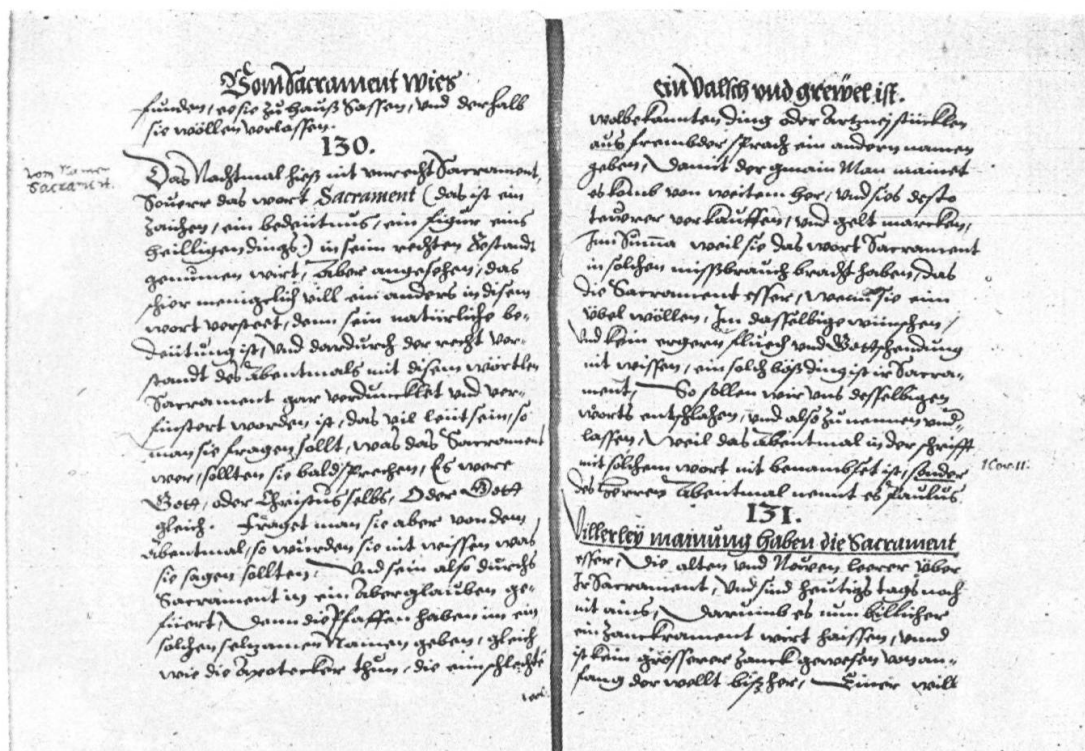 Vom Sacrament wies
funden, so sie zu hauß Sassen, und derhalb
sie wöllen verlassen.
130.
vom Namen
Sacrament.
Das Nachtmal hieß nit unrecht Sacrament,
Soverr das wort Sacrament (das ist ein
zaichen, ein bedeütnus, ein figur eins
heilligen dings) in seim rechten verstandt
genumen wirt, Aber angesehen, das
schier menigclich vill ein anders in disem
wort versteet, dann sein natürliche be-
deütung ist, Und dardurch der recht ver-
standt des Abentmals mit disem wörtlen
Sacrament gar verduncklet und ver-
finstert worden ist, das vil leüt sein, so
man sie fragen sollt, was das Sacrament
wer, sollten sie bald sprechen, Es were
Gott, oder Christus selbs, Oder Gott
gleich. Fraget man sie aber von dem
Abentmal, so würden sie nit wissen was
sie sagen sollten, Und sein also durchs
Sacrament in ein Aberglauben ge-
füert, Dann die Pfaffen haben im ein
solchen selzamen Namen geben, gleich
wie die Apotecker thun, die ein schlechte
wol-
ein valsch und grewel ist.
wolbekannten ding oder Artzneystücklen
aus frembder sprach ein andern namen
geben, Damit der gmain Man mainet
es komb von weitem her, Und sies desto
tewrer verkauffen, und gelt marcken,
Inn Summa weil sie das wort Sacrament
in solchen mißbrauch bracht haben, das
die Sacrament esser, Wenn sie eim
übel wöllen, Im dasselbige wünschen,
Und kein ergern fluech und Gottschendung
nit wissen, ein solch böß ding ist ir Sacra-
ment, So sollen wir uns desselbigen
worts entschlahen, und also zu nennen und-
lassen, Weil das Abentmal in der schrifft
mit solchem wort nit benambset ist, sonder
des herren Abentmal nennt es Paulus
1 Cor. 11.
131.
Villerley mainung haben die Sacrament
esser, Die alten und Newen leerer über
Ir Sacrament, Und sind heutigs tags noch
nit ains, Darumb es nun billicher
ein Zanckrament wirt haissen, unnd
ist kein grösserer Zanck gewesen von an-
fang der wellt biß her, Einer will